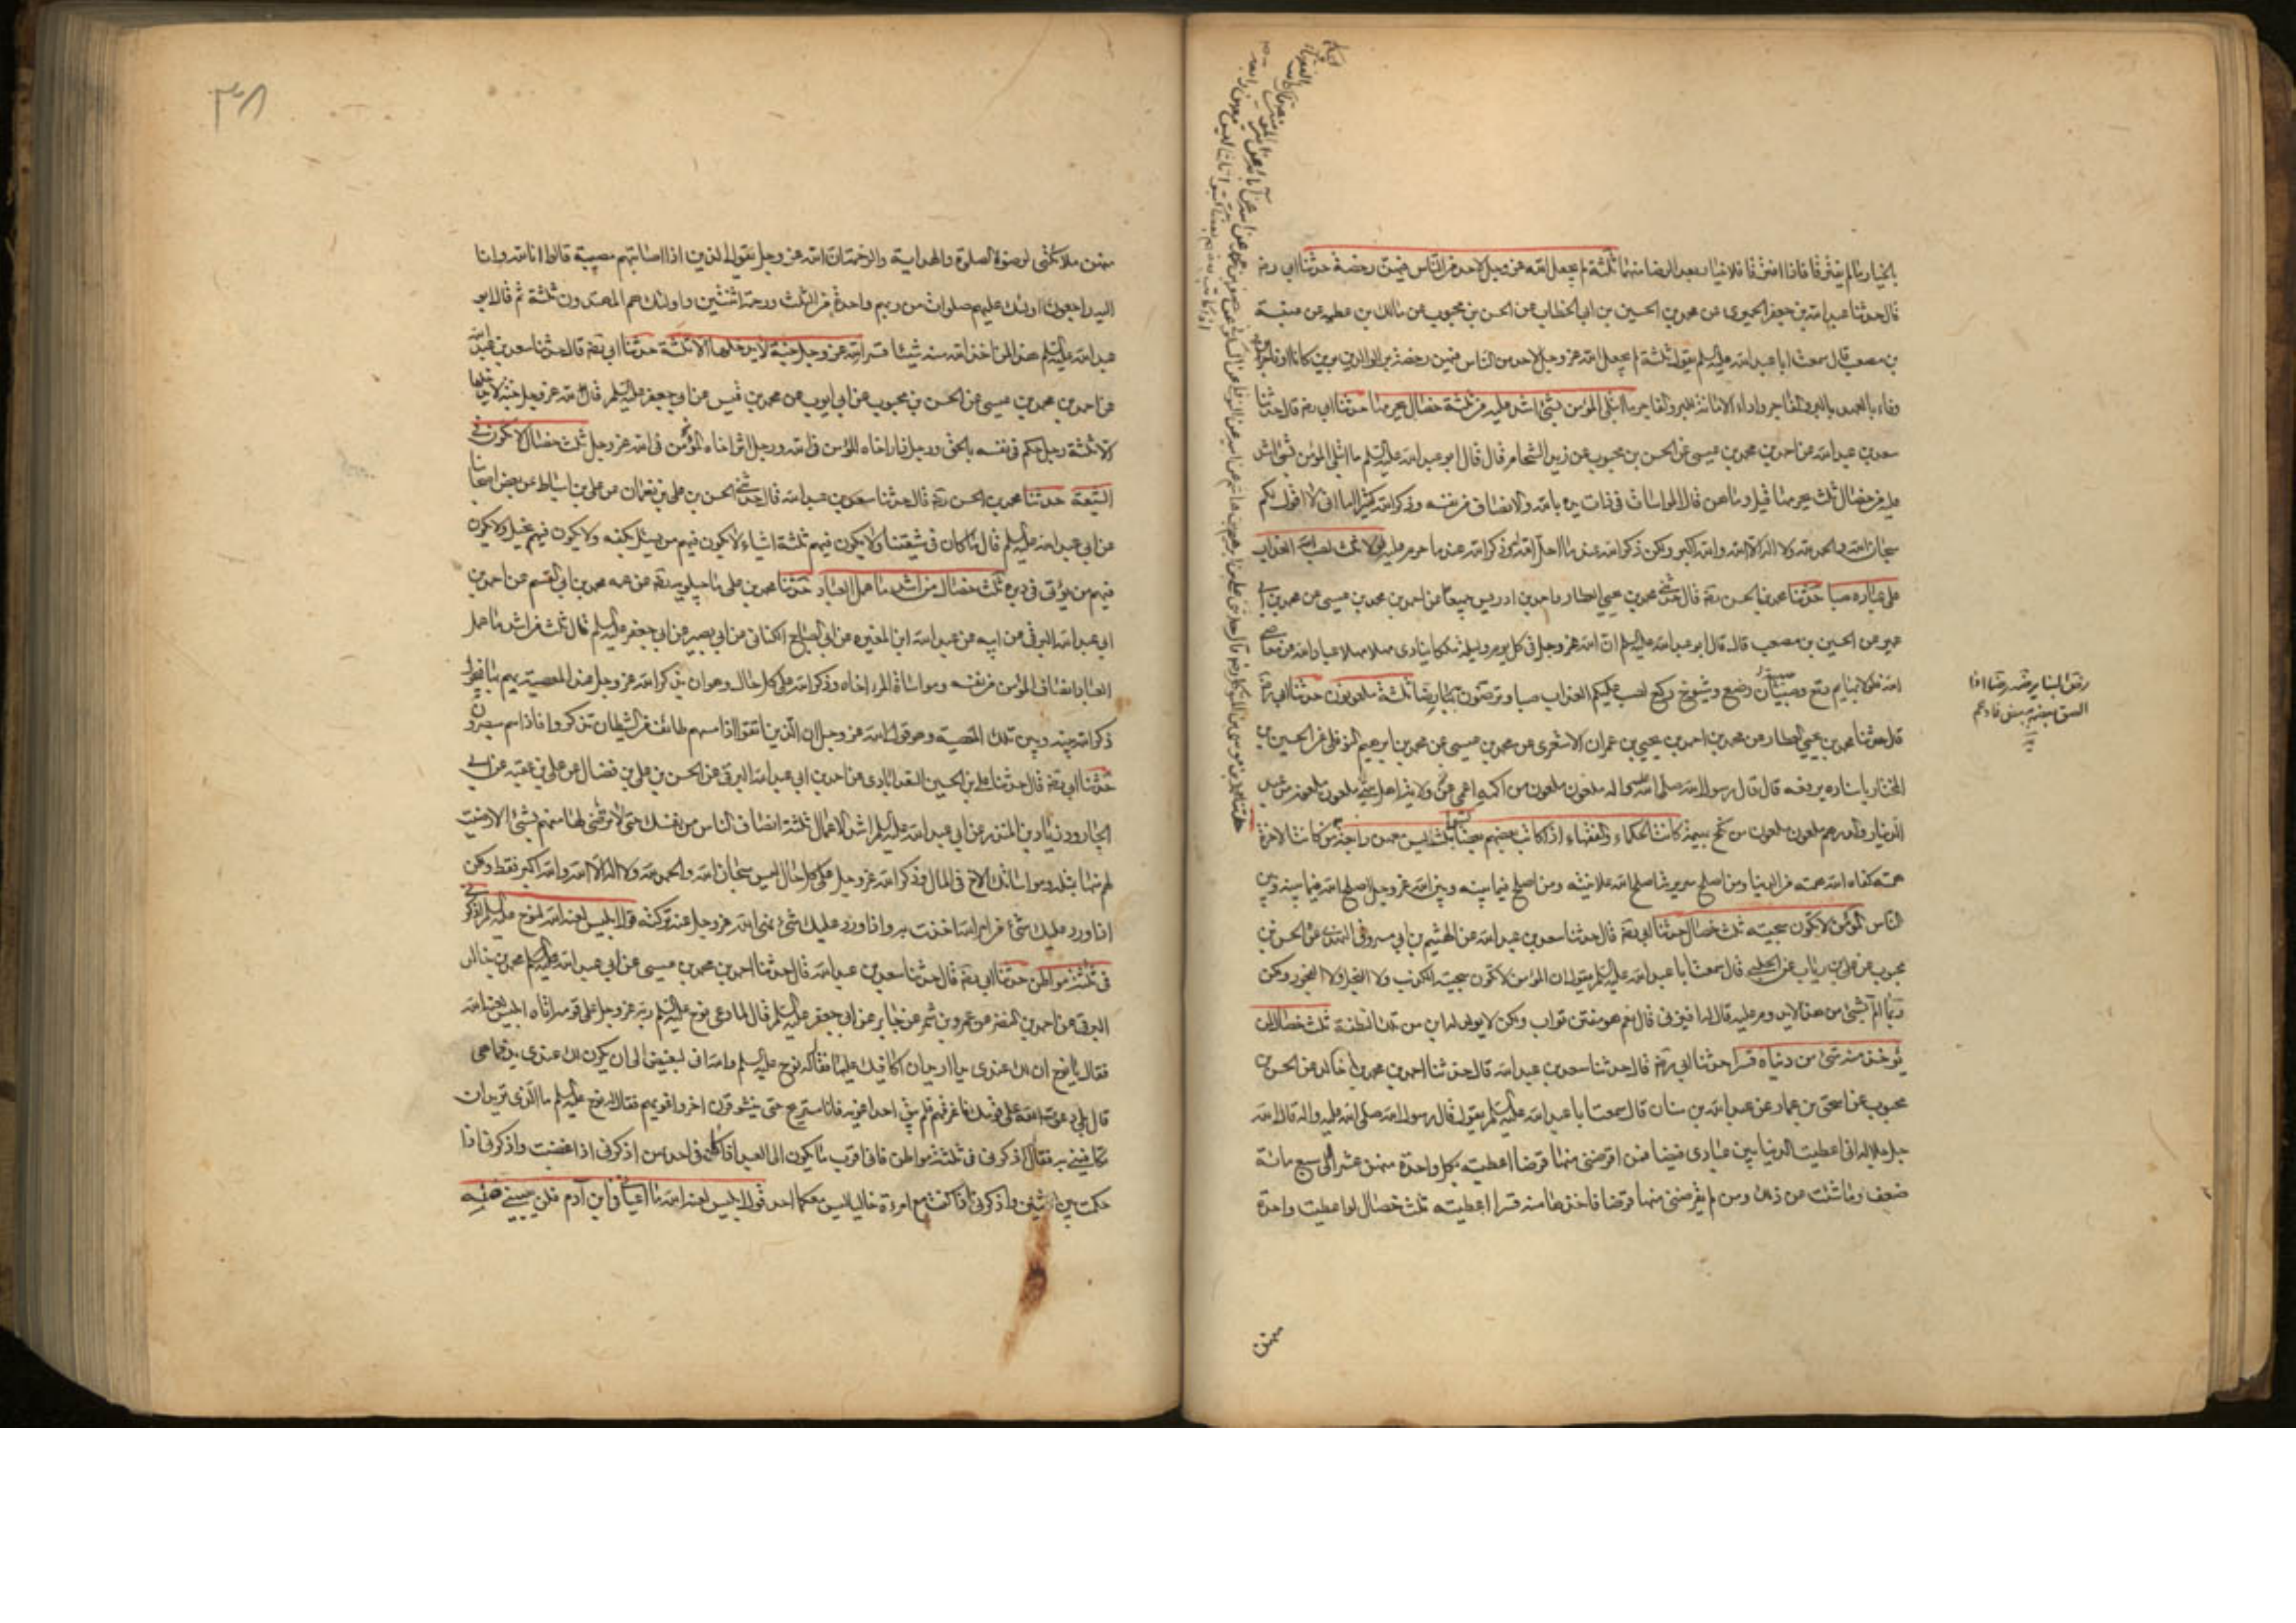 بالخيار ما لم يفترقا فاذا افترقا فلا خيار بعد الرضا منهما ثلثة لم يجعل الله عز وجل لاحد من الناس فيهن رخصة حدثنا ابي رضه
قال حدثنا عبد الله بن جعفر الحميري عن محمد بن الحسين بن ابي الخطاب عن الحسن بن محبوب عن مالك بن عطيه عن عنبسة
بن مصعب قال سمعت ابا عبد الله عليه السلم يقول ثلثة لم يجعل الله عز وجل لاحد من الناس فيهن رخصة بر الوالدين برين كانا او فاجرين
وفاء بالعهد بالبر والفاجر واداء الامانة للبر والفاجر ما ابتلى المؤمن بشئ اشد عليه من ثلثة خصال يحرمها حدثنا ابي رضه قال حدثنا
سعد بن عبد الله عن احمد بن محمد بن عيسى عن الحسن بن محبوب عن زيد الشحام قال قال ابو عبد الله عليه السلم ما ابتلى المؤمن بشئ اشد
عليه من خصال ثلث يحرمها قيل وما هن قال المواساة في ذات يده بالله والانصاف من نفسه وذكر الله كثيرا اما اني لا اقول لكم
سبحان الله والحمد لله ولا اله الا الله والله اكبر ولكن ذكر الله عند ما احل له وذكر الله عند ما حرم عليه لولا ثلث لصب الله العذاب
على عباده صبا حدثنا محمد بن الحسن رضه قال حدثني محمد بن يحيى العطار واحمد بن ادريس جميعا عن احمد بن محمد بن عيسى عن محمد بن ابي
عمير عن الحسين بن مصعب قال قال ابو عبد الله عليه السلم ان الله عز وجل في كل يوم وليلة ملكا ينادي مهلا مهلا عباد الله عن معاصي
الله فلولا بهايم رتع وصبية رضع وشيوخ ركع لصب عليكم العذاب صبا وترضون به رضا ثلثة ملعونون حدثنا ابي رضه
قال حدثنا محمد بن يحيى العطار عن محمد بن احمد بن يحيى بن عمران الاشعري عن محمد بن عيسى عن محمد بن ابرهيم النوفلي عن الحسين بن
المختار باسناده يرفعه قال قال رسول الله صلى الله عليه واله ملعون ملعون من اكمه اعمى ملعون ملعون من عبد
الدينار والدرهم ملعون ملعون من نكح بهيمة كانت الحكماء والفقهاء اذا كاتب بعضهم بعضا كتبوا بثلث ليس معهن رابعة من كانت الاخرة
همته كفاه الله همته من الدنيا ومن اصلح سريرته اصلح الله علانيته ومن اصلح فيما بينه وبين الله عز وجل اصلح الله فيما بينه وبين
الناس المؤمن لا يكون سجيته ثلث خصال حدثنا ابي رضه قال حدثنا سعد بن عبد الله عن الهيثم بن ابي مسروق النهدي عن الحسن بن
محبوب عن علي بن رئاب عن الحلبي قال سمعت ابا عبد الله عليه السلم يقول ان المؤمن لا تكون سجيته الكذب ولا البخل ولا الفجور ولكن
ربما الم بشئ من هذا لا يدوم عليه قال له افيزني قال نعم هو مفتن تواب ولكن لا يولد له ابن من تلك النطفة ثلث خصال لمن
يؤخذ منه شئ من دنياه قسرا حدثنا ابي رضه قال حدثنا سعد بن عبد الله قال حدثنا احمد بن محمد بن خالد عن الحسن بن
محبوب عن اسحق بن عمار عن عبد الله بن سنان قال سمعت ابا عبد الله عليه السلم يقول قال رسول الله صلى الله عليه واله قال الله
جل جلاله اني اعطيت الدنيا بين عبادي فيضا فمن اقرضني منها قرضا اعطيته بكل واحدة منهن عشرا الى سبع مائة
ضعف وما شئت من ذلك ومن لم يقرضني منها قرضا فاخذتها منه قسرا اعطيته ثلث خصال لو اعطيت واحدة
منهن
منهن ملائكتي لرضوا الصلوة والهداية والرحمة ان الله عز وجل يقول الذين اذا اصابتهم مصيبة قالوا انا لله وانا
اليه راجعون اولئك عليهم صلوات من ربهم واحدة من الثلث ورحمة اثنتين واولئك هم المهتدون ثلثة ثم قال ابو
عبد الله عليه السلم هذا لمن اخذ الله منه شيئا قسرا لله عز وجل جنة لا يدخلها الا ثلثة حدثنا ابي رضه قال حدثنا سعد بن عبد الله
عن احمد بن محمد بن عيسى عن الحسن بن محبوب عن ابي ايوب عن محمد بن قيس عن ابي جعفر عليه السلم قال لله عز وجل جنة لا يدخلها
الا ثلثة رجل حكم في نفسه بالحق ورجل زار اخاه المؤمن في الله ورجل اثر اخاه المؤمن في الله عز وجل ثلث خصال لا تكون في
الشيعة حدثنا محمد بن الحسن رضه قال حدثنا سعد بن عبد الله قال حدثني الحسن بن علي بن نعمان عن علي بن اسباط عن بعض اصحابنا
عن ابي عبد الله عليه السلم قال ما كان في شيعتنا ولا يكون فيهم ثلثة اشياء لا يكون فيهم من يسئل بكفه ولا يكون فيهم بخيل ولا يكون
فيهم من يؤتى في دبره ثلث خصال من اشد ما عمل العباد حدثنا محمد بن علي ماجيلويه رضه عن عمه محمد بن ابي القسم عن احمد بن
ابي عبد الله البرقي عن ابيه عن عبد الله ابن المغيره عن ابي الصباح الكناني عن ابي بصير عن ابي جعفر عليه السلم قال ثلث من اشد ما عمل
العباد انصاف المؤمن من نفسه ومواساة المرء اخاه وذكر الله على كل حال وهو ان يذكر الله عز وجل عند المعصية يهم بها فيحول
ذكر الله بينه وبين تلك المعصية وهو قول الله عز وجل ان الذين اتقوا اذا مسهم طائف من الشيطان تذكروا فاذا هم مبصرون
حدثنا ابي رضه قال حدثنا علي بن الحسين السعدابادي عن احمد بن ابي عبد الله البرقي عن الحسن بن علي بن فضال عن علي بن عقبه عن ابي
الجارود زياد بن المنذر عن ابي عبد الله عليه السلم اشد الاعمال ثلثة انصاف الناس من نفسك حتى لا ترضى لها منهم بشئ الا رضيت
لهم منها بمثله ومواساتك الاخ في المال وذكر الله عز وجل على كل حال ليس سبحان الله والحمد لله ولا اله الا الله والله اكبر فقط ولكن
اذا ورد عليك شئ من امر الله اخذت به واذا ورد عليك شئ نهى الله عز وجل عنه تركته قول ابليس لعنه الله لنوح عليه السلم اذكرني
في ثلثة مواطن حدثنا ابي رضه قال حدثنا سعد بن عبد الله قال حدثنا احمد بن محمد بن عيسى عن ابي عبد الله محمد بن خالد
البرقي عن احمد بن النضر عن عمرو بن شمر عن جابر عن ابي جعفر عليه السلم قال لما دعى نوح عليه السلم ربه عز وجل على قومه اتاه ابليس لعنه الله
فقال يا نوح ان لك عندي يدا اريد ان اكافيك عليها فقال نوح عليه السلم والله اني لبغيض الي ان يكون لك عندي يد فما هي
قال بلى دعوت الله على قومك فاغرقهم فلم يبق احد اغويه فانا استريح حتى ينشو قرن اخر واغويهم فقال له نوح عليه السلم ما الذي تريد ان
تكافيني به فقال اذكرني في ثلثة مواطن فاني اقرب ما يكون الى العبد اذا كان في احدهن اذكرني اذا غضبت واذكرني اذا
حكمت بين اثنين واذكرني اذا كنت مع امرءة خاليا ليس معكما احد قول ابليس لعنه الله ما اعياني في ابن آدم فلن يعييني منه